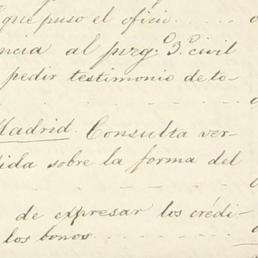 que puso el oficio.....
ncia al juzg.º 3.º civil
pedir testimonio de to-
Madrid. Consulta ver-
ida sobre la forma del
de expresar los crédi-
los bonos.....